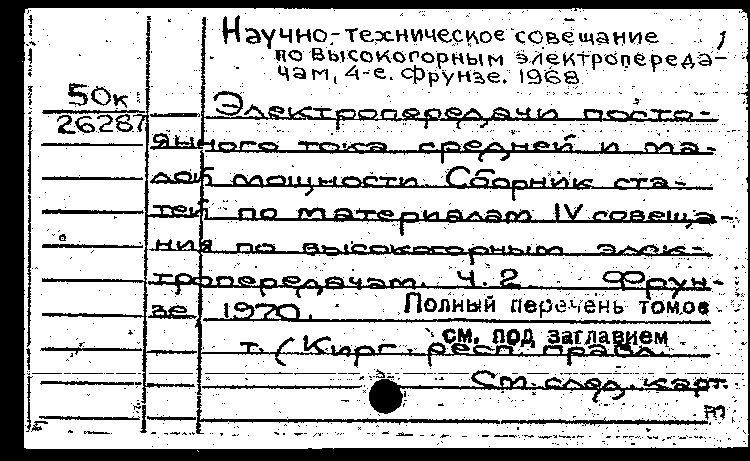 Научно-техническое совещание 1
по высокогорным электропереда-
чам, 4-е. Фрунзе. 1968
50к
26287
Электропередачи посто-
янного тока средней и ма-
лой мощности. Сборник ста-
тей по материалам IV совеща-
ния по высокогорным элек-
тропередачам. Ч. 2. Фрун-
зе 1970.
Полный перечень томов
см. под заглавием
т. (Кирг. респ. правл.
См. след. карт.